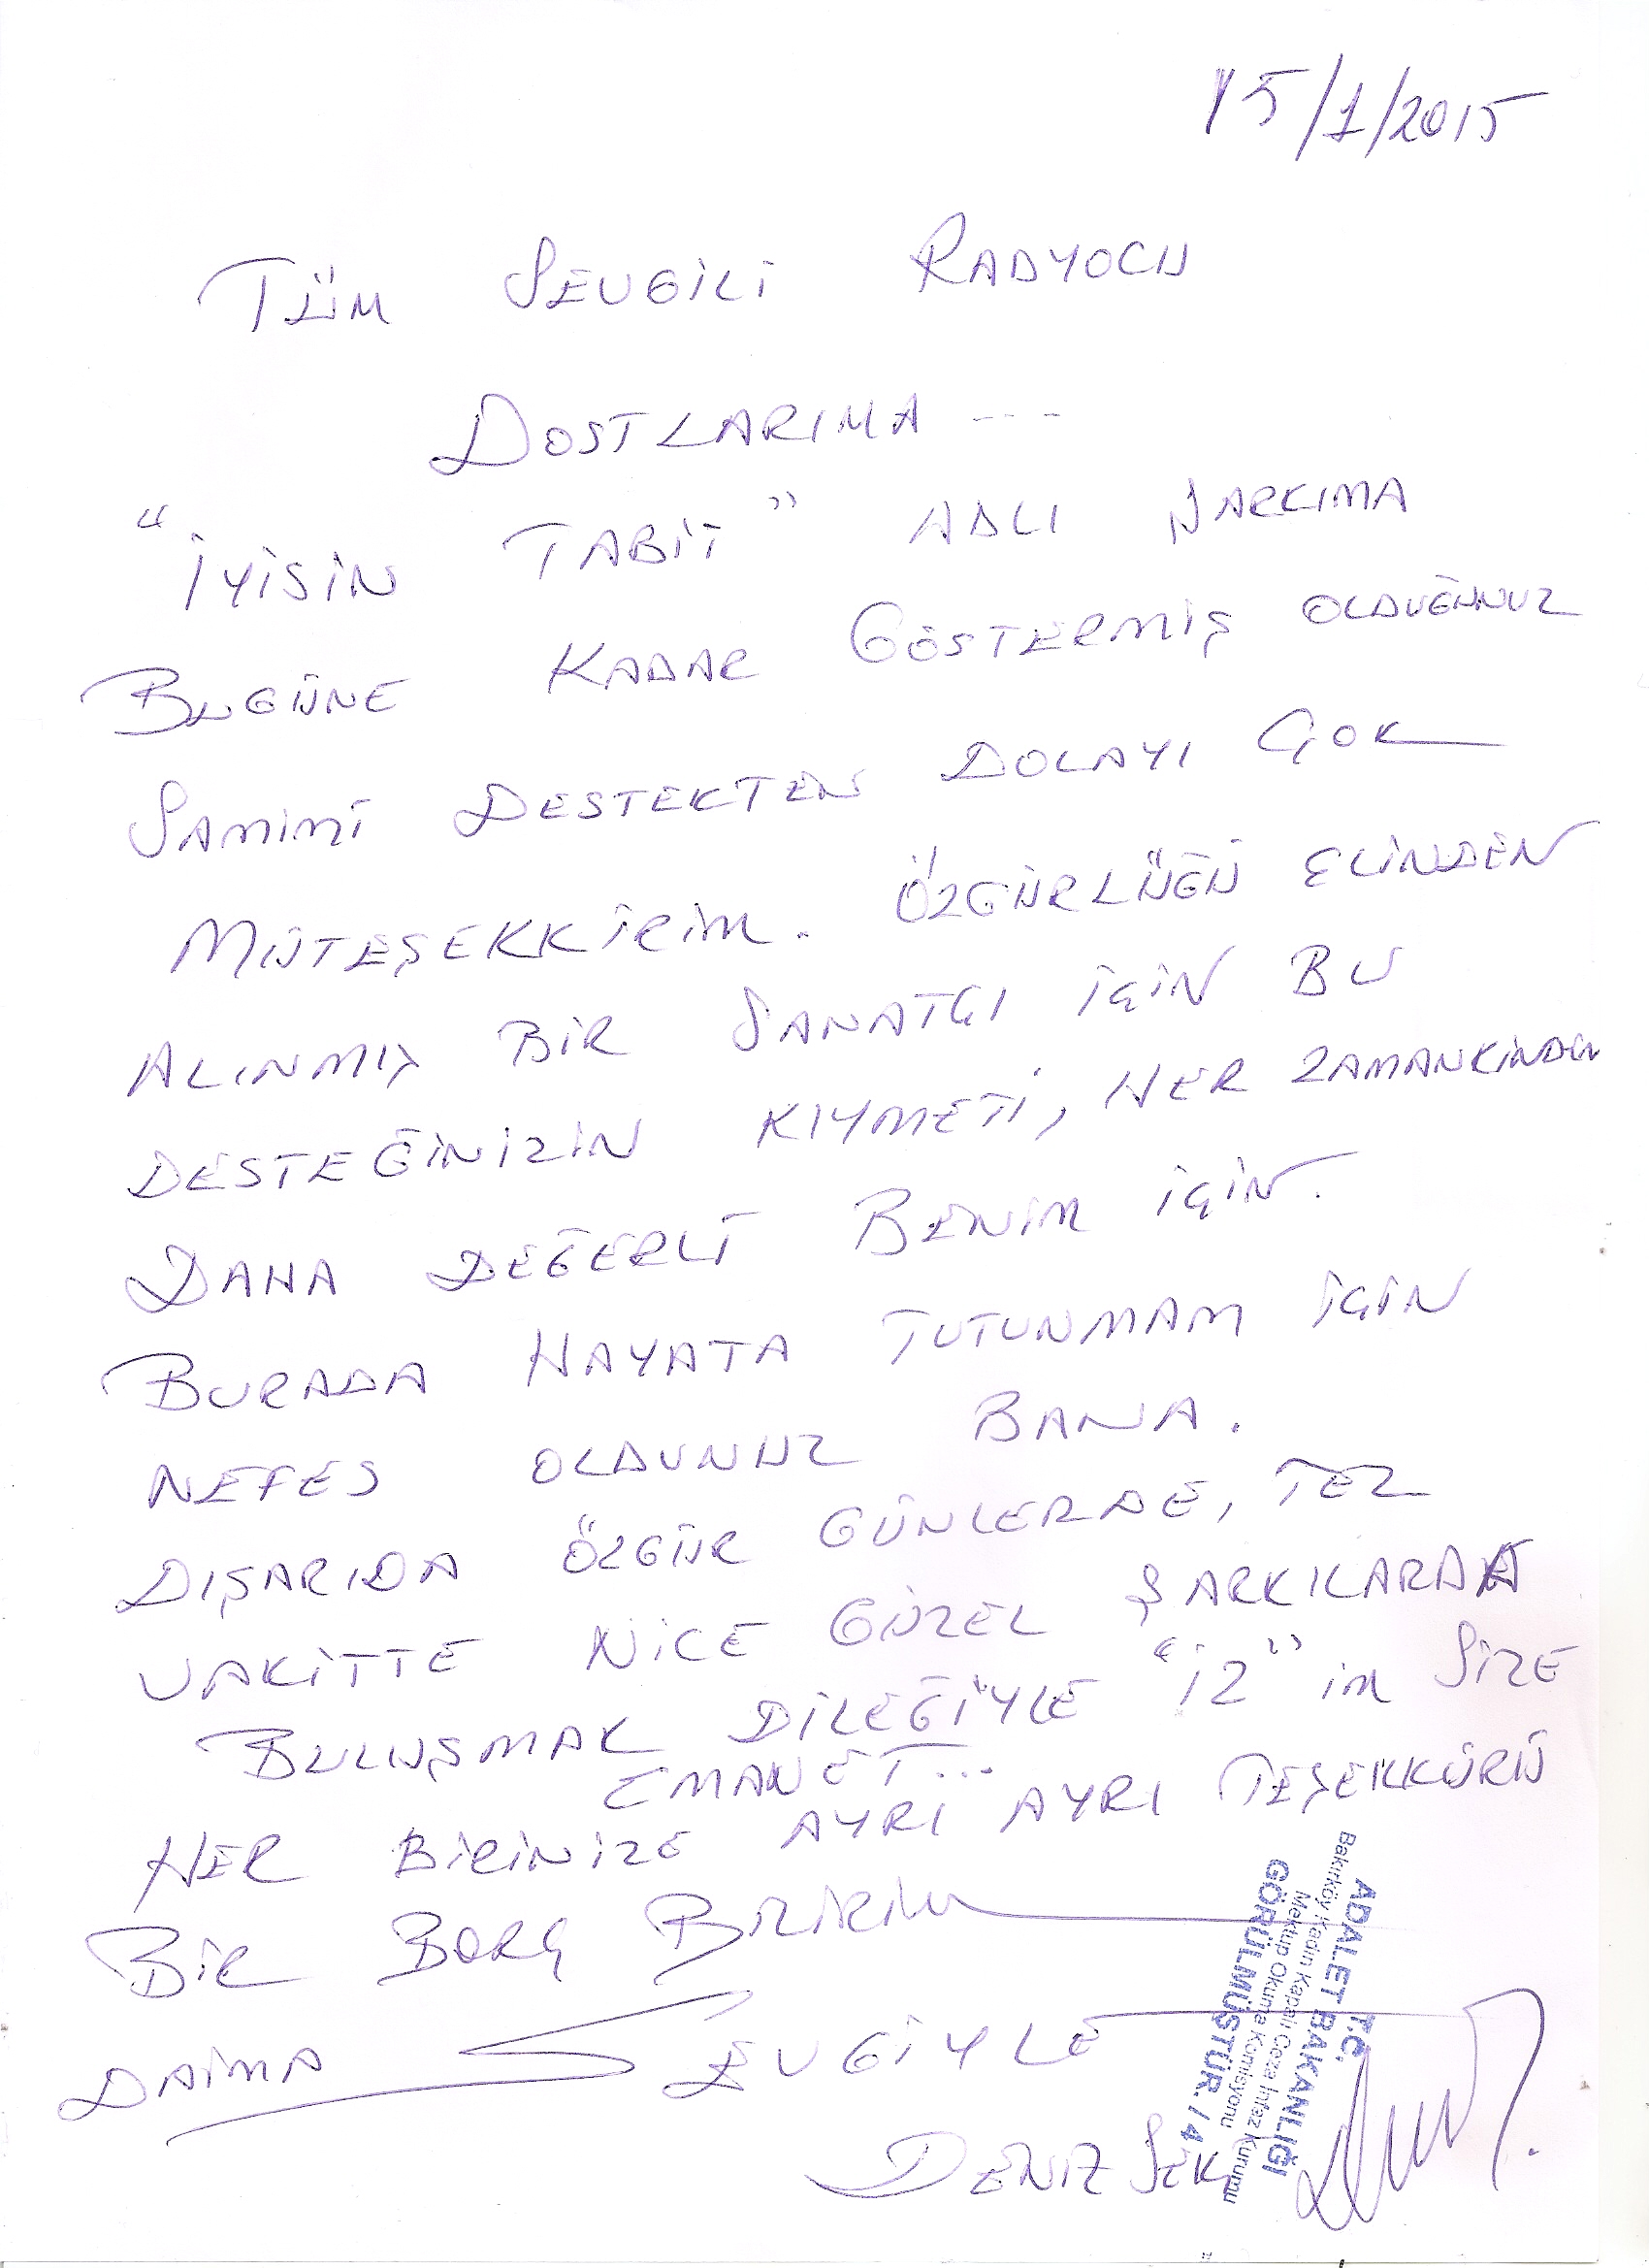 15/1/2015
TÜM SEVGİLİ RADYOCU
DOSTLARIMA ---
"İYİSİN TABİİ" ADLI ŞARKIMA
BUGÜNE KADAR GÖSTERMİŞ OLDUĞUNUZ
SAMİMİ DESTEKTEN DOLAYI ÇOK
MÜTEŞEKKİRİM. ÖZGÜRLÜĞÜ ELİNDEN
ALINMIŞ BİR SANATÇI İÇİN BU
DESTEĞİNİZİN KIYMETİ, HER ZAMANKİNDEN
DAHA DEĞERLİ BENİM İÇİN.
BURADA HAYATA TUTUNMAM İÇİN
NEFES OLDUNUZ BANA.
DIŞARIDA ÖZGÜR GÜNLERDE, TEZ
VAKİTTE NİCE GÜZEL ŞARKILARDA
BULUŞMAK DİLEĞİYLE "İZ" İM SİZE
EMANET...
HER BİRİNİZE AYRI AYRI TEŞEKKÜRÜ
BİR BORÇ BİLİRİM
DAİMA SEVGİYLE
DENİZ SEKİ
T.C.
ADALET BAKANLIĞI
Bakırköy Kadın Kapalı Ceza İnfaz Kurumu
Mektup Okuma Komisyonu
GÖRÜLMÜŞTÜR. / 4